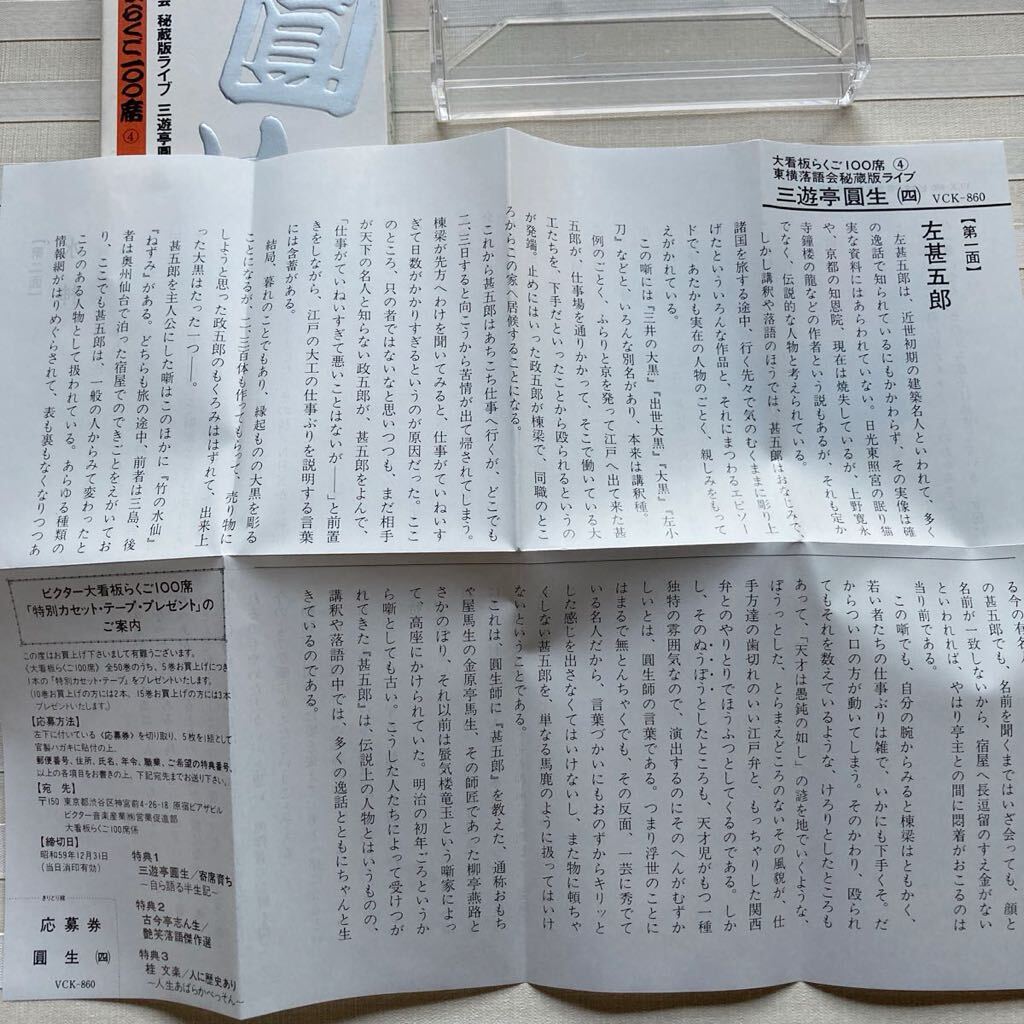 会 秘蔵版ライブ 三遊亭圓
らくご一〇〇席 ④
圓
大看板らくご100席 ④
東横落語会秘蔵版ライブ
三遊亭圓生 ㈣ VCK-860
【第一面】
左甚五郎
左甚五郎は、近世初期の建築名人といわれて、多く
の逸話で知られているにもかかわらず、その実像は確
実な資料にはあらわれていない。日光東照宮の眠り猫
や、京都の知恩院、現在は焼失しているが、上野寛永
寺鐘楼の龍などの作者という説もあるが、それも定か
でなく、伝説的な人物と考えられている。
しかし講釈や落語のほうでは、甚五郎はおなじみで、
諸国を旅する途中、行く先々で気のむくままに彫り上
げたといういろんな作品と、それにまつわるエピソー
ドで、あたかも実在の人物のごとく、親しみをもって
えがかれている。
この噺には『三井の大黒』『出世大黒』『大黒』『左小
刀』などと、いろんな別名があり、本来は講釈種。
例のごとく、ふらりと京を発って江戸へ出て来た甚
五郎が、仕事場を通りかかって、そこで働いている大
工たちを、下手だといったことから殴られるというの
が発端。止めにはいった政五郎が棟梁で、同職のとこ
ろからこの家へ居候することになる。
これから甚五郎はあちこち仕事へ行くが、どこでも
二、三日すると向こうから苦情が出て帰されてしまう。
棟梁が先方へわけを聞いてみると、仕事がていねいす
ぎて日数がかかりすぎるというのが原因だった。ここ
のところ、只の者ではないなと思いつつも、まだ相手
が天下の名人と知らない政五郎が、甚五郎をよんで、
「仕事がていねいすぎて悪いことはないが――」と前置
きをしながら、江戸の大工の仕事ぶりを説明する言葉
には含蓄がある。
結局、暮れのことでもあり、縁起ものの大黒を彫る
ことになるが、二、三百体も作ってもらって、売り物に
しようと思った政五郎のもくろみははずれて、出来上
った大黒はたった一つ――。
甚五郎を主人公にした噺はこのほかに『竹の水仙』
『ねずみ』がある。どちらも旅の途中、前者は三島、後
者は奥州仙台で泊った宿屋でのできごとをえがいてお
り、ここでも甚五郎は、一般の人からみて変わったと
ころのある人物として扱われている。あらゆる種類の
情報網がはりめぐらされて、表も裏もなくなりつつあ
る今の有
の甚五郎でも、名前を聞くまではいざ会っても、顔と
名前が一致しないから、宿屋へ長逗留のすえ金がない
といわれれば、やはり亭主との間に悶着がおこるのは
当り前である。
この噺でも、自分の腕からみると棟梁はともかく、
若い者たちの仕事ぶりは雑で、いかにも下手くそ。だ
からつい口の方が動いてしまう。そのかわり、殴られ
てもそれを数えているような、けろりとしたところも
あって、「天才は愚鈍の如し」の諺を地でいくような、
ぼうっとした、とらまえどころのないその風貌が、仕
手方達の歯切れのいい江戸弁と、もっちゃりした関西
弁とのやりとりでほうふつとしてくるのである。しか
し、そのぬうぼうとしたところも、天才児がもつ一種
独特の雰囲気なので、演出するのにそのへんがむずか
しいとは、圓生師の言葉である。つまり浮世のことに
はまるで無とんちゃくでも、その反面、一芸に秀でて
いる名人だから、言葉づかいにもおのずからキリッと
した感じを出さなくてはいけないし、また物に頓ちゃ
くしない甚五郎を、単なる馬鹿のように扱ってはいけ
ないということである。
これは、圓生師に『甚五郎』を教えた、通称おもち
ゃ屋馬生の金原亭馬生、その師匠であった柳亭燕路と
さかのぼり、それ以前は蜃気楼竜玉という噺家によっ
て、高座にかけられていた。明治の初年ごろというか
ら噺としても古い。こうした人たちによって受けつが
れてきた『甚五郎』は、伝説上の人物とはいうものの、
講釈や落語の中では、多くの逸話とともにちゃんと生
きているのである。
ビクター大看板らくご100席
「特別カセット・テープ・プレゼント」の
ご案内
この度はお買上げ下さいまして有難うございます。
《大看板らくご100席》全50巻のうち、5巻お買上げにつき
1本の「特別カセット・テープ」をプレゼントいたします。
(10巻お買上げの方には2本、15巻お買上げの方には3本
プレゼントいたします。)
【応募方法】
左下に付いている《応募券》を切り取り、5枚を1組として
官製ハガキに貼付の上、
郵便番号、住所、氏名、年令、職業、ご希望の特典番号、
以上の各項目をお書きの上、下記宛先までお送り下さい。
【宛 先】
〒150 東京都渋谷区神宮前4-26-18 原宿ピアザビル
ビクター音楽産業㈱営業促進部
大看板らくご100席係
【締切日】
昭和59年12月31日
(当日消印有効)
特典1
三遊亭圓生/寄席育ち
〜自ら語る半生記〜
特典2
古今亭志ん生/
艶笑落語傑作選
特典3
桂 文楽/人に歴史あり
〜人生あばらかべっそん〜
きりとり線
応募券
圓生 ㈣
VCK-860